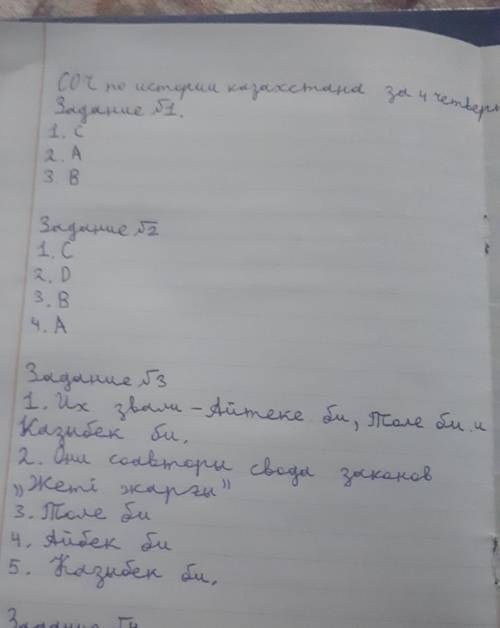 СОЧ по истории казахстана за 4 четверт
Задание №1.
1. С
2. А
3. В
Задание №2
1. С
2. D
3. В
4. А
Задание №3
1. Их звали - Айтеке би, Толе би и
Казыбек би.
2. Они соавторы свода законов
„Жеті жарғы"
3. Толе би
4. Айбек би
5. Казыбек би.
Задание №4